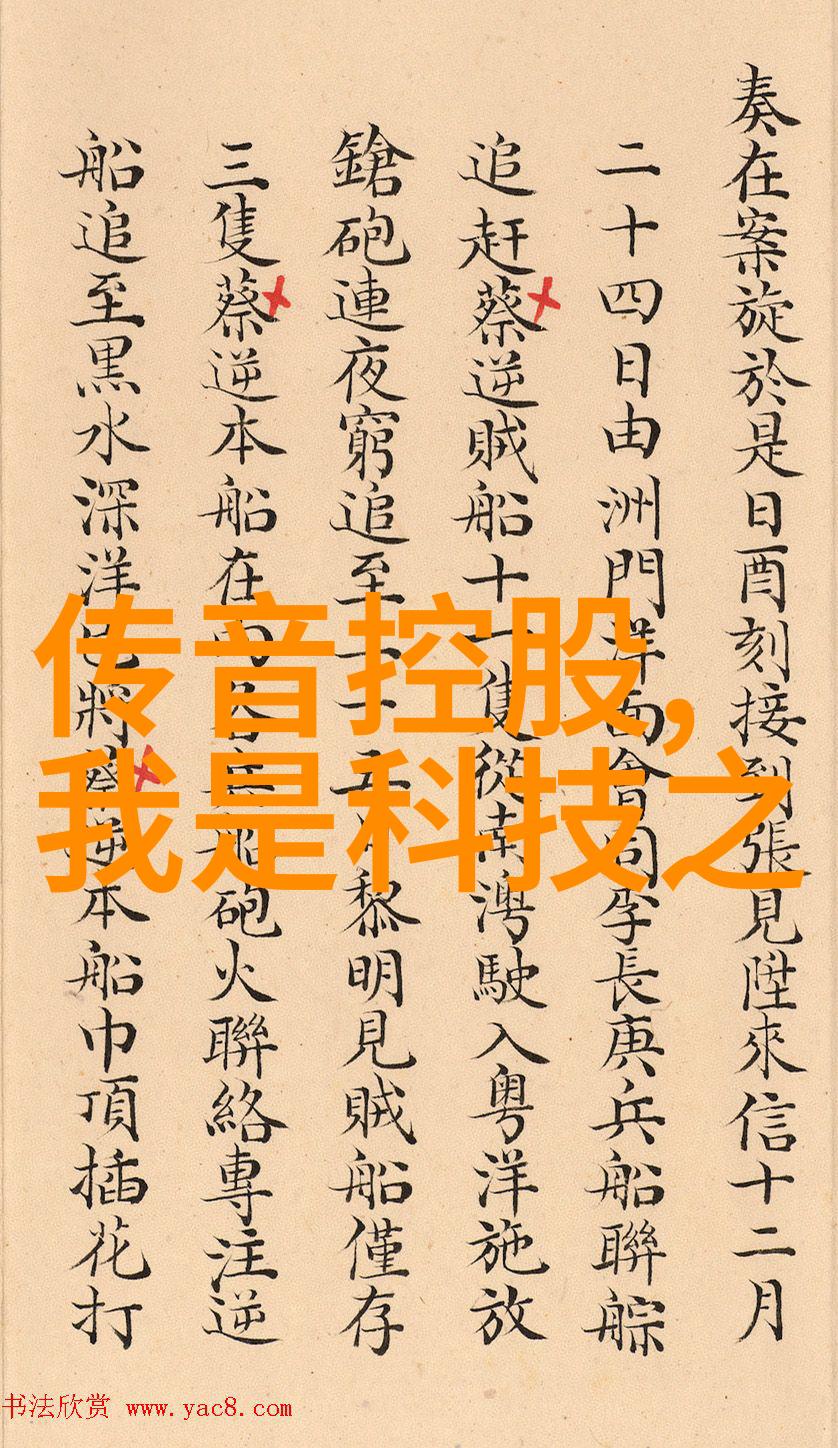 奏在案旋於是日酉刻接到張見陞來信十二月
二十四日由洲門洋面會同李長庚兵船聯䑸
追赶蔡逆賊船十一隻從南灣駛入粤洋施放
鎗砲連夜窮追至二十五日黎明見賊船僅存
三隻蔡逆本船在內各兵船砲火聯絡專注逆
船追至黒水深洋已將蔡逆本船巾頂插花打
传音控股,
我是科技之
书法欣赏 www.yac8.com